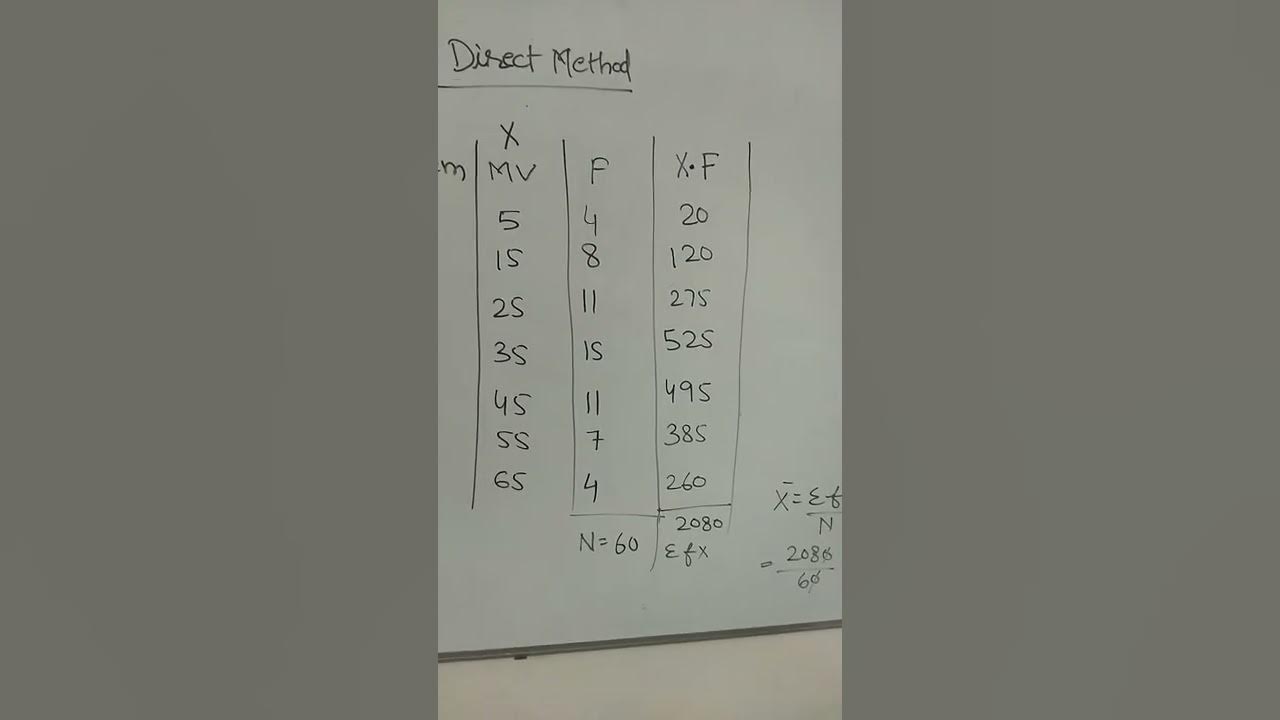 Direct Method
X
m MV F X·F
5 4 20
15 8 120
25 11 275
35 15 525
45 11 495
55 7 385
65 4 260
N=60 2080
Σfx
X̄=Σf
N
= 2080
60